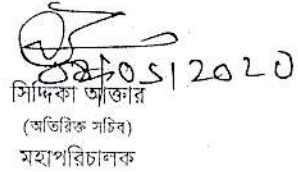 05/2020
সিদ্দিকা আক্তার
(অতিরিক্ত সচিব)
মহাপরিচালক